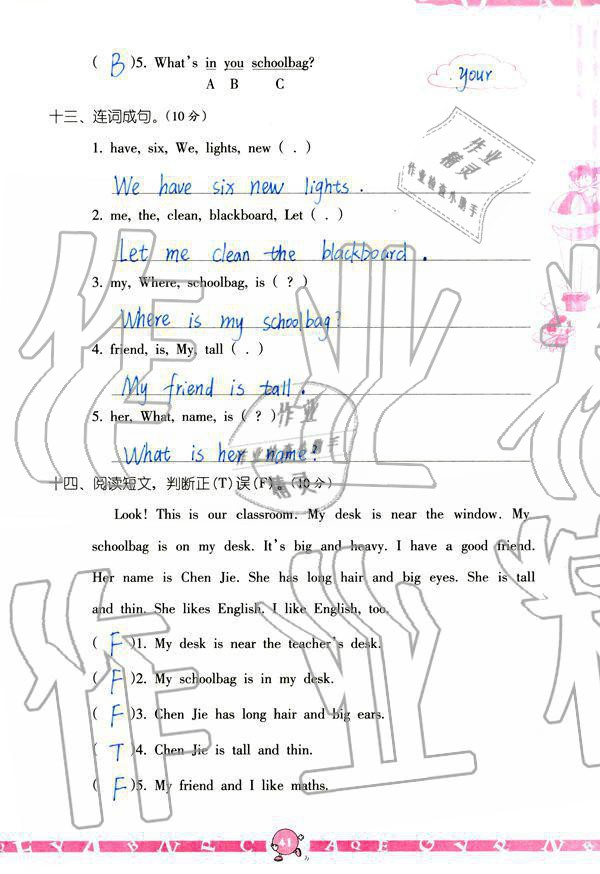 ( B )5. What's in you schoolbag?
A B C
your
十三、连词成句。(10分)
1. have, six, We, lights, new ( . )
We have six new lights.
2. me, the, clean, blackboard, Let ( . )
Let me clean the blackboard.
3. my, Where, schoolbag, is ( ? )
Where is my schoolbag?
4. friend, is, My, tall ( . )
My friend is tall.
5. her, What, name, is ( ? )
What is her name?
十四、阅读短文，判断正(T)误(F)。(10分)
Look! This is our classroom. My desk is near the window. My
schoolbag is on my desk. It's big and heavy. I have a good friend.
Her name is Chen Jie. She has long hair and big eyes. She is tall
and thin. She likes English. I like English, too.
( F )1. My desk is near the teacher's desk.
( F )2. My schoolbag is in my desk.
( F )3. Chen Jie has long hair and big ears.
( T )4. Chen Jie is tall and thin.
( F )5. My friend and I like maths.
41
作业
精灵
作业检查小助手
作业
作业检查小助手
精灵